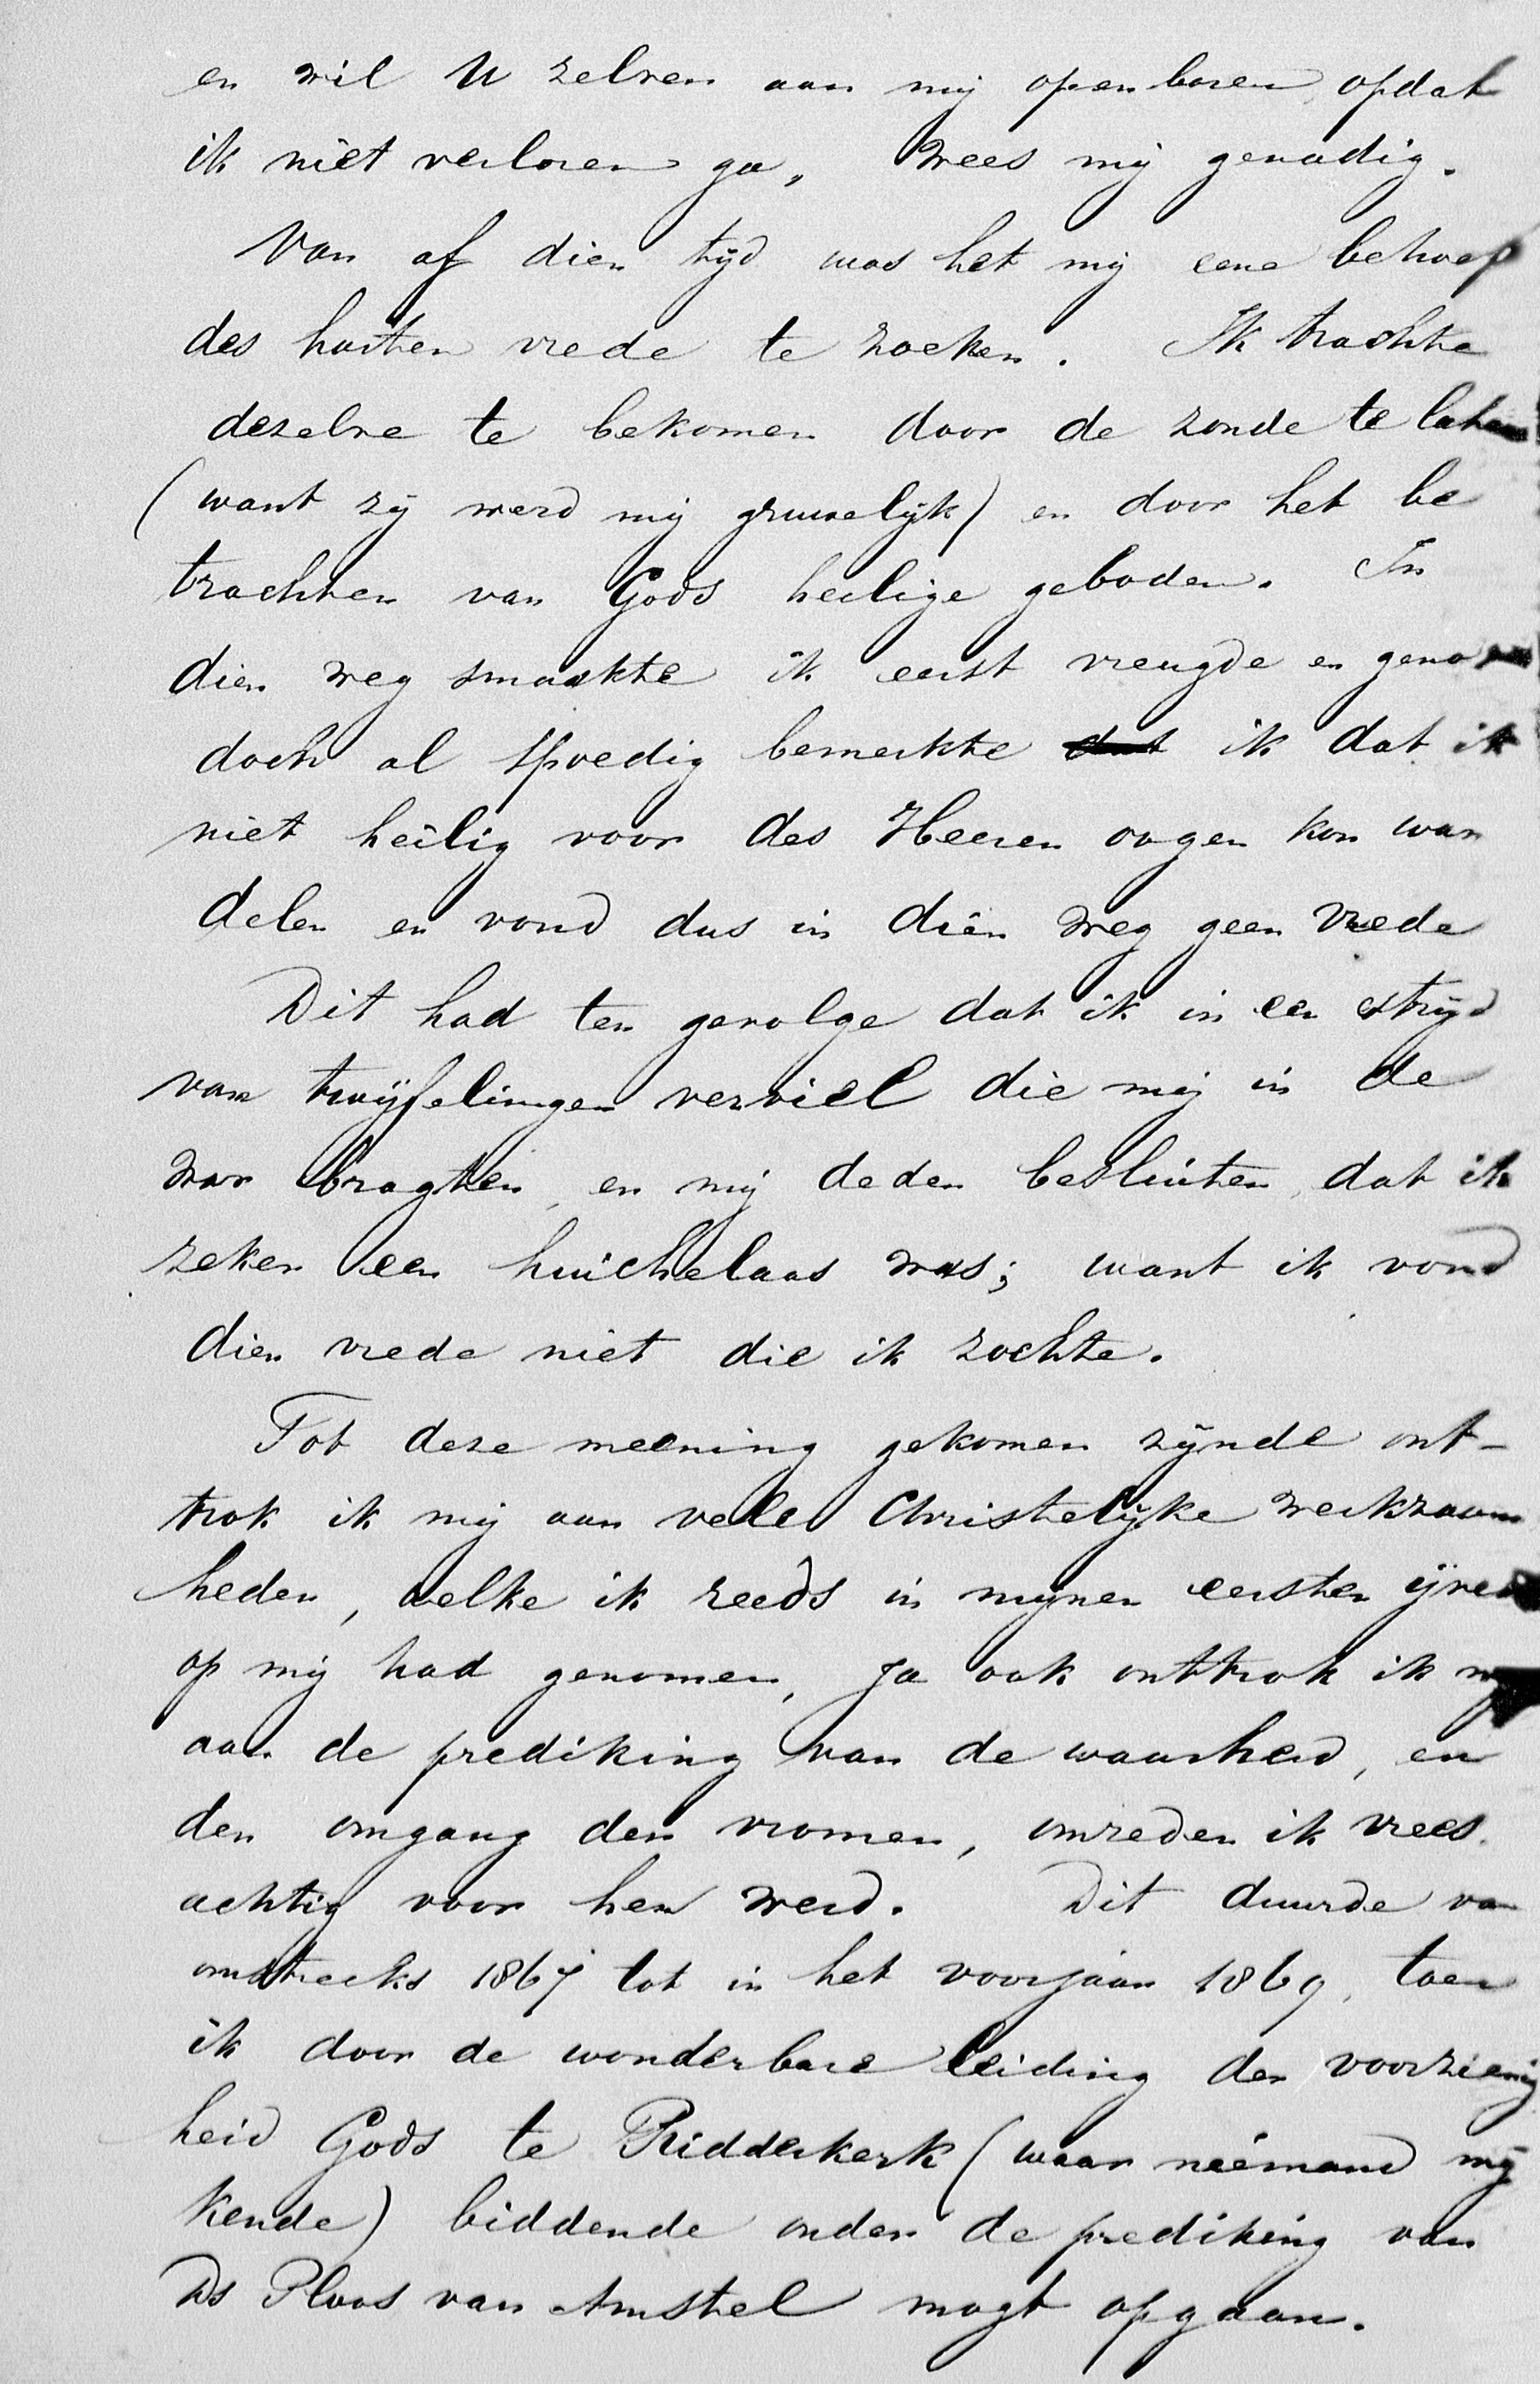 en wil U zelven aan mij openbaren, opdat
ik niet verloren ga, Wees mij genadig.
Van af dien tijd was het mij eene behoef
des harten vrede te zoeken. Ik trachtte
dezelve te bekomen door de zonde te laten
(want zij werd mij gruwelijk) en door het be
trachten van Gods heilige geboden. In
dien weg smaakte ik eerst vreugde en
doch al spoedig bemerkte dat ik dat ik
niet heilig voor des Heeren oogen kon wan
delen en vond dus in dien weg geen vrede
Dit had ten gevolge dat ik in een strijd
van twijfelingen verviel die mij in de
war bragten, en mij deden besluiten, dat ik
zeker een huichelaar was; want ik vond
dien vrede niet die ik zochte.
Tot deze meening gekomen zijnde ont-
trok ik mij aan vele Christelijke werkzaam
heden, welke ik reeds in mijnen eersten ijver
op mij had genomen, ja ook onttrok ik mij
aan de prediking van de waarheid, en
den omgang der vromen, omreden ik vrees
achtig voor hen werd. Dit duurde van
omstreeks 1867 tot in het voorjaar 1869, toen
ik door de wonderbare leiding der voorzienig
heid Gods te Ridderkerk (waar niemand mij
kende) biddende onder de prediking van
Ds Ploos van Amstel mogt opgaan.